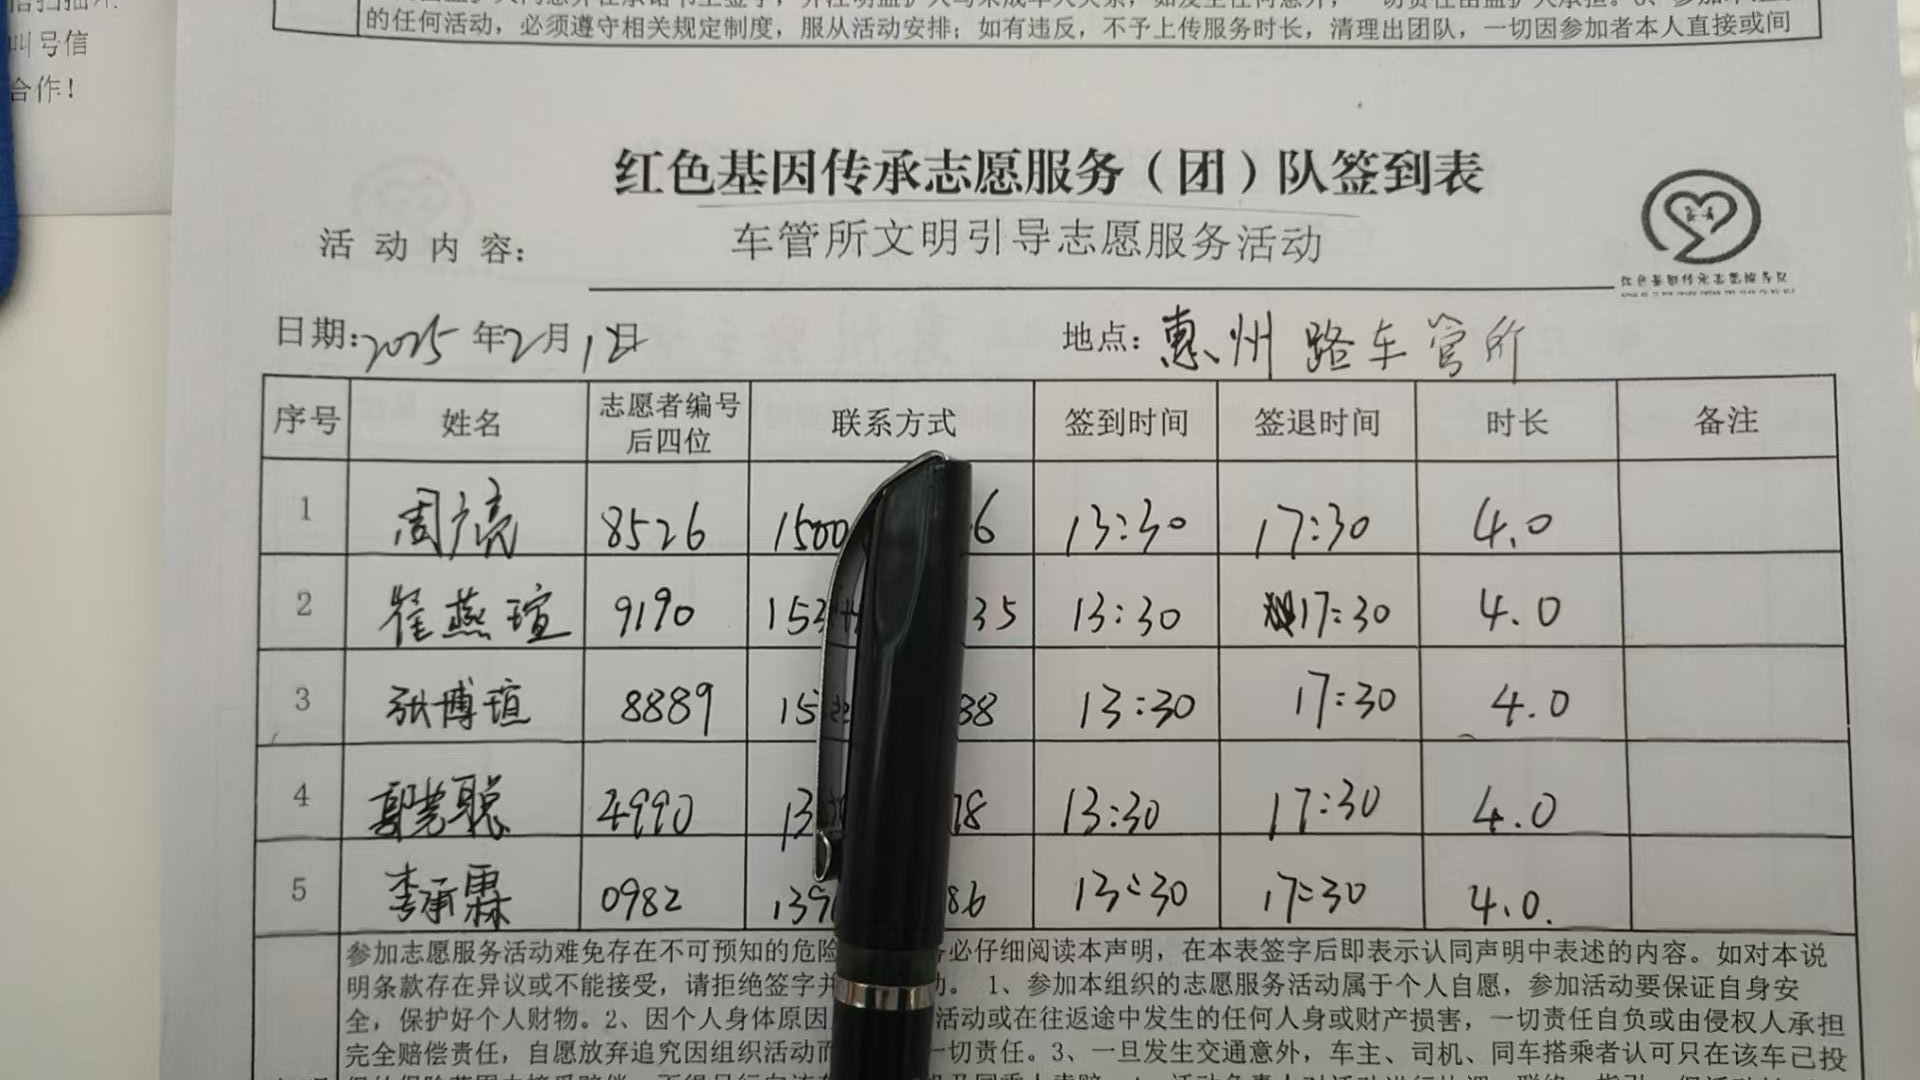 叫号信
合作！
的任何活动，必须遵守相关规定制度，服从活动安排；如有违反，不予上传服务时长，清理出团队，一切因参加者本人直接或间
红色基因传承志愿服务（团）队签到表
活动内容：车管所文明引导志愿服务活动
日期：2025年2月1日 地点：惠州路车管所
序号 姓名 志愿者编号后四位 联系方式 签到时间 签退时间 时长 备注
1 周广亮 8526 1500 6 13:30 17:30 4.0
2 崔燕瑄 9190 153 35 13:30 17:30 4.0
3 张博瑄 8889 15 38 13:30 17:30 4.0
4 郭芸聪 4990 13 78 13:30 17:30 4.0
5 李承霖 0982 139 86 13:30 17:30 4.0.
参加志愿服务活动难免存在不可预知的危险 必仔细阅读本声明，在本表签字后即表示认同声明中表述的内容。如对本说
明条款存在异议或不能接受，请拒绝签字并 。1、参加本组织的志愿服务活动属于个人自愿，参加活动要保证自身安
全，保护好个人财物。2、因个人身体原因 活动或在往返途中发生的任何人身或财产损害，一切责任自负或由侵权人承担
完全赔偿责任，自愿放弃追究因组织活动而 一切责任。3、一旦发生交通意外，车主、司机、同车搭乘者认可只在该车已投